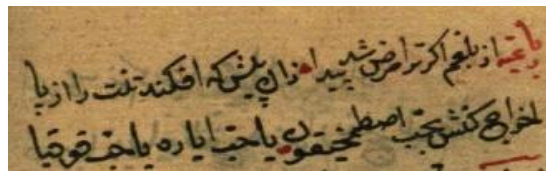 از بلغم اگر ترا مرض شد پیدا زان پیش که افکند تنت را از پا
اخراج کنش بحب اصطمخیقون یا حب ایاره یا حب قوقیا